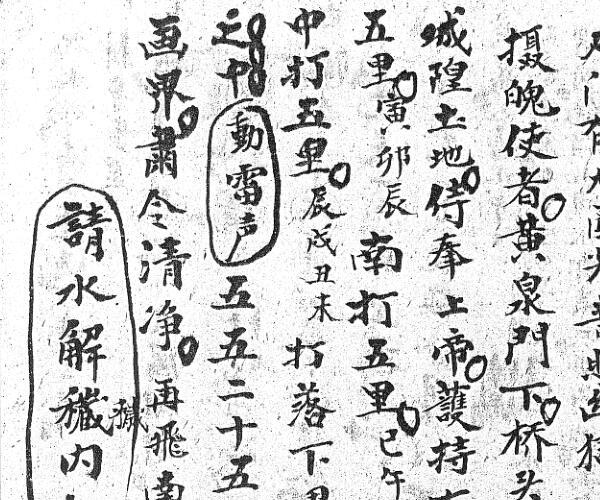 摄魄使者黄泉門下桥头
城隍土地侍奉上帝護持
五里寅卯辰南打五里巳午
中打五里辰戌丑未打落下
之中動雷声五五二十五
画界肅令清净再飛南
請水解穢穢内